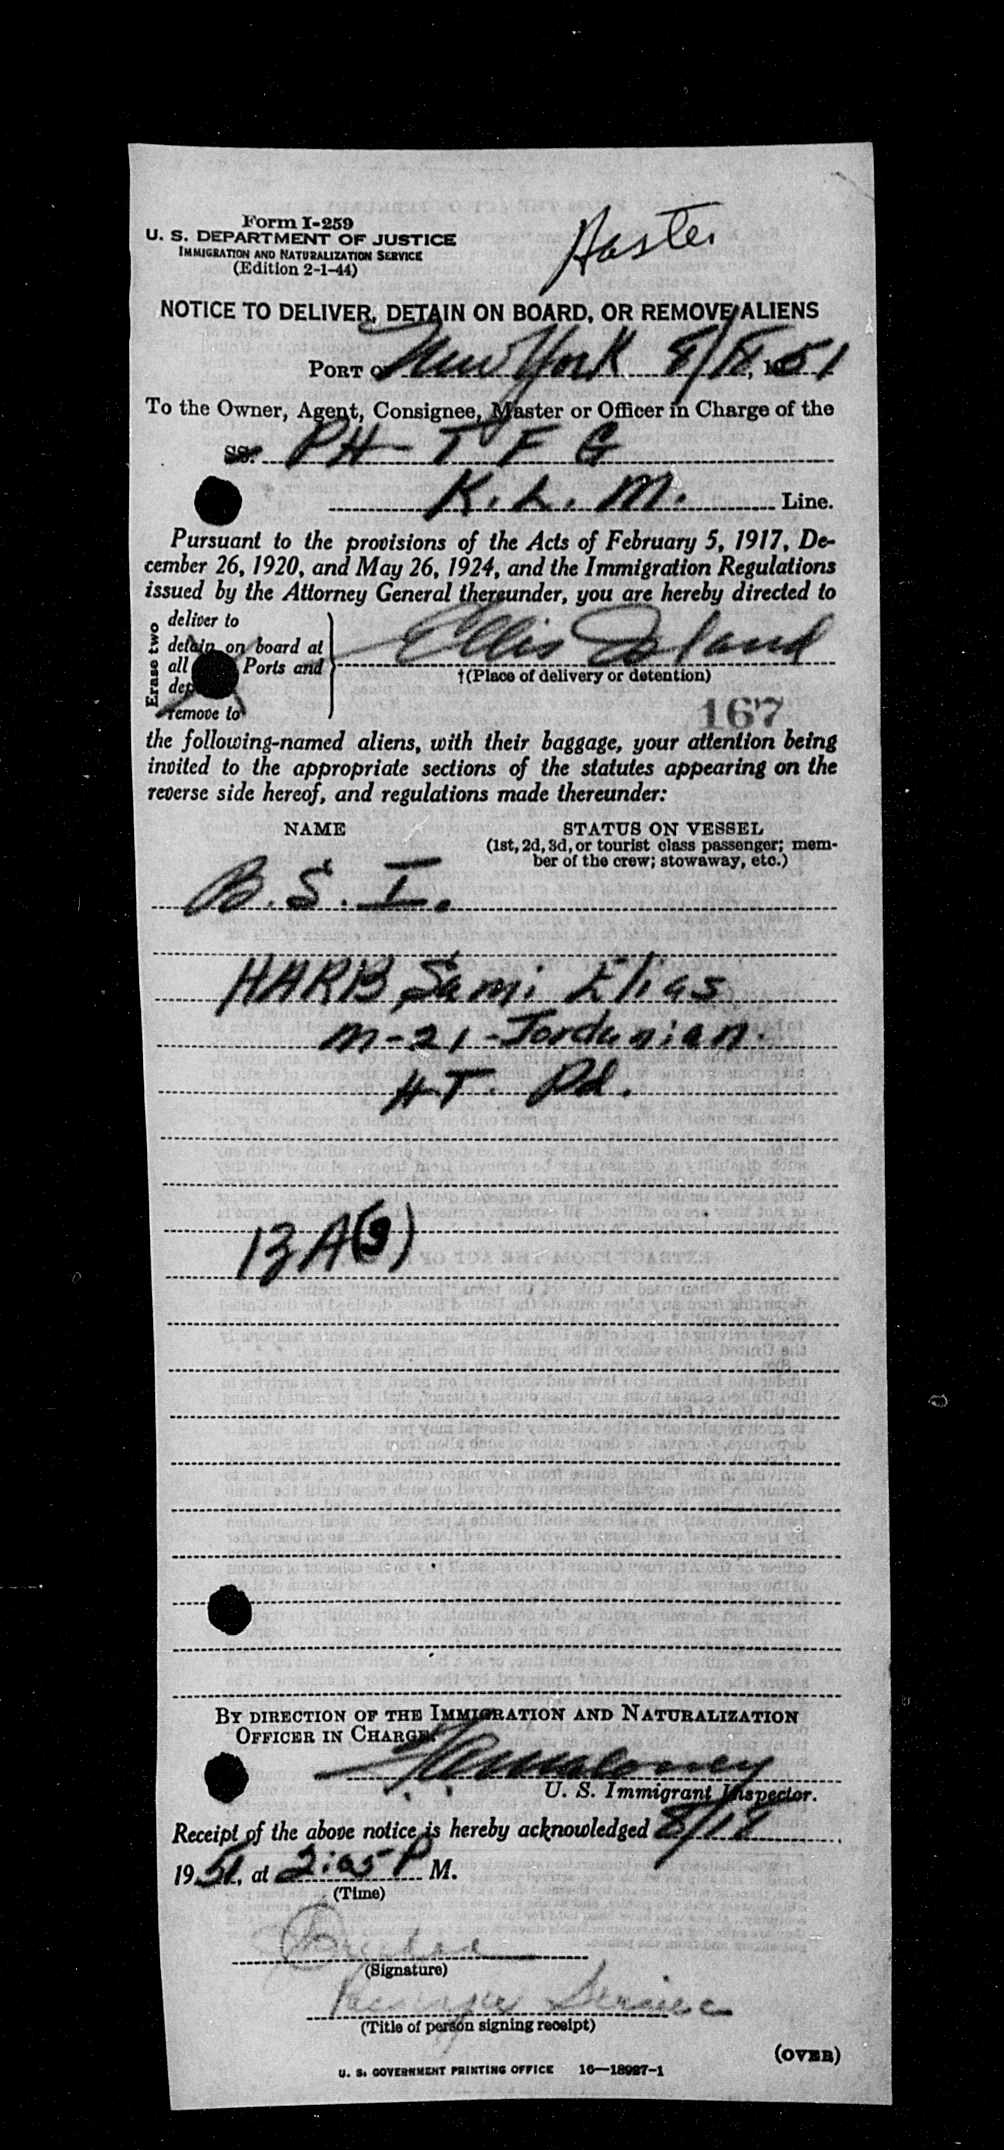 Form I-259
U. S. DEPARTMENT OF JUSTICE
IMMIGRATION AND NATURALIZATION SERVICE
(Edition 2-1-44)
NOTICE TO DELIVER, DETAIN ON BOARD, OR REMOVE ALIENS
PORT OF New York 8/18, 1951
To the Owner, Agent, Consignee, Master or Officer in Charge of the
SS. PH-TFG
K. L. M. Line.
Pursuant to the provisions of the Acts of February 5, 1917, De-
cember 26, 1920, and May 26, 1924, and the Immigration Regulations
issued by the Attorney General thereunder, you are hereby directed to
Erase two
deliver to
detain on board at
all Ports and
remove to
Ellis Island
†(Place of delivery or detention)
167
the following-named aliens, with their baggage, your attention being
invited to the appropriate sections of the statutes appearing on the
reverse side hereof, and regulations made thereunder:
NAME STATUS ON VESSEL
(1st, 2d, 3d, or tourist class passenger; mem-
ber of the crew; stowaway, etc.)
B. S. I.
HARB, Sami Elias
M-21-Jordanian.
H.T. Pd.
13A(3)
BY DIRECTION OF THE IMMIGRATION AND NATURALIZATION
OFFICER IN CHARGE.
U. S. Immigrant Inspector.
Receipt of the above notice is hereby acknowledged 8/18
1951, at 2:05 P M.
(Time)
(Signature)
Service
(Title of person signing receipt)
(OVER)
U. S. GOVERNMENT PRINTING OFFICE 16—18987-1